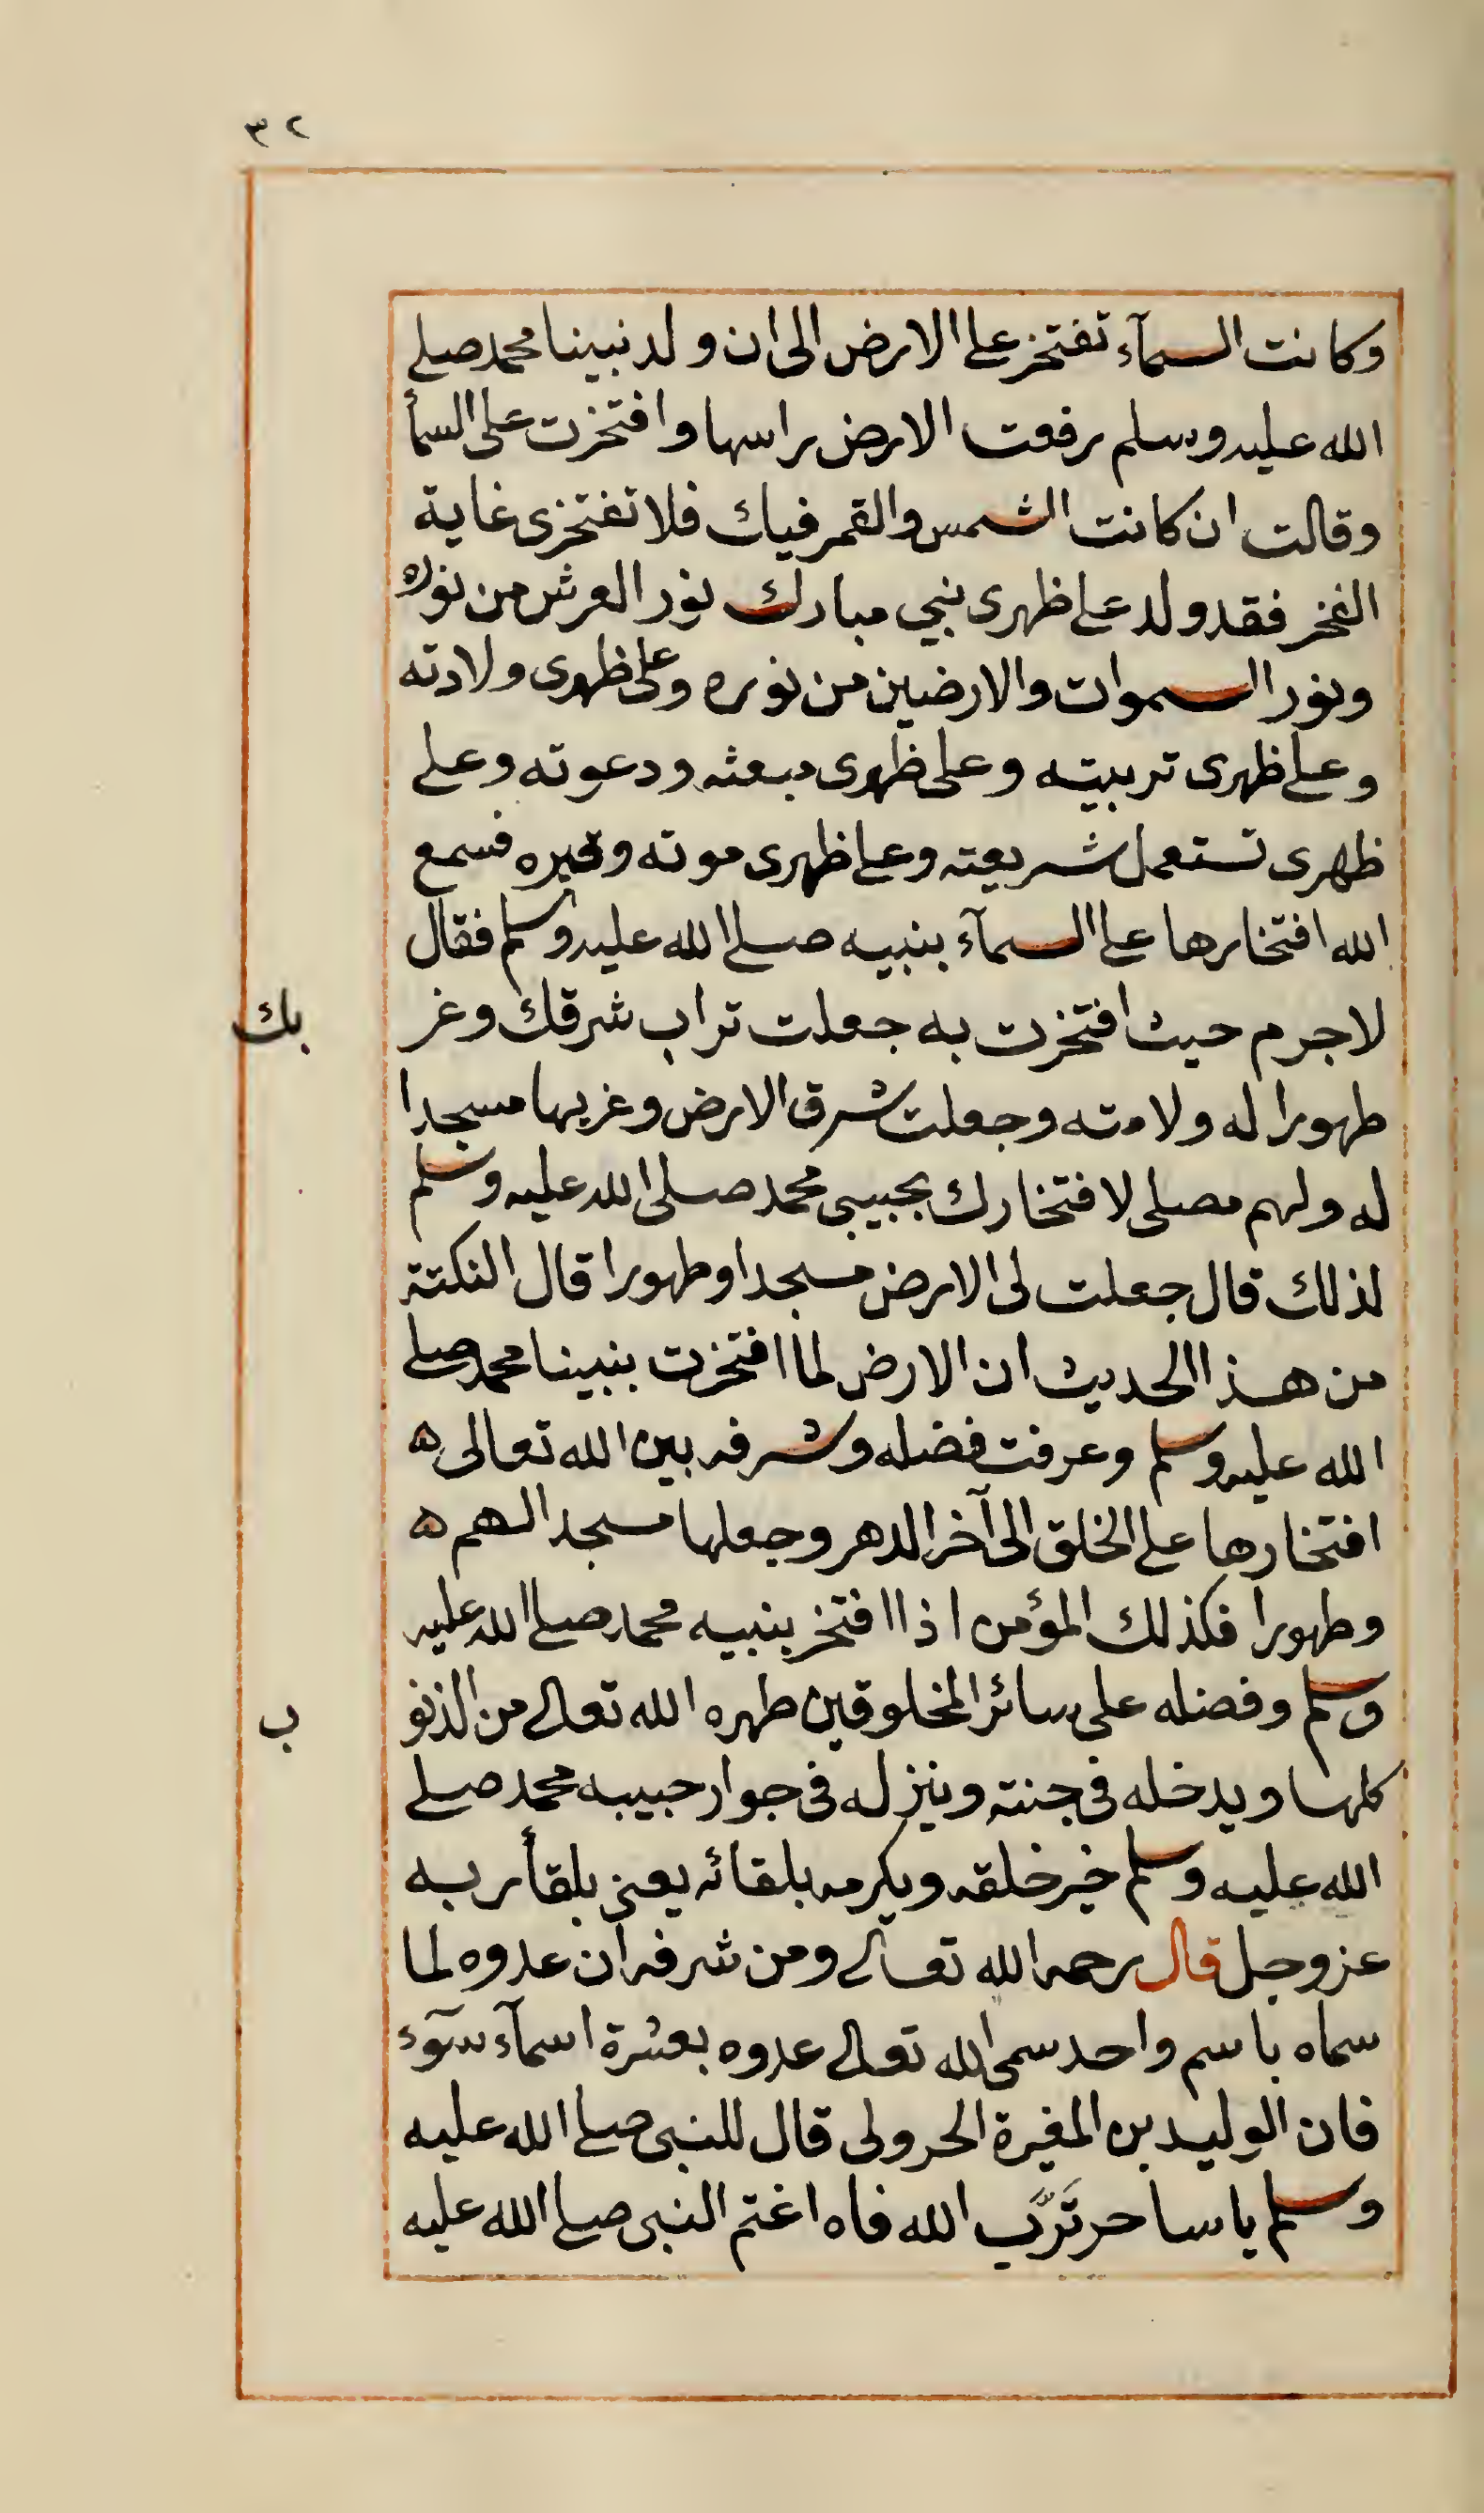 ٣٢
وكانت السمآء تفتخر على الارض الى ان ولد نبينا محمد صلى
الله عليه وسلم رفعت الارض راسها وافتخرت على السمأ
وقالت ان كانت الشمس والقمر فيك فلا تفتخرى غاية
الفخر فقد ولد على ظهرى نبي مبارك نور العرش من نوره
ونور السموات والارضين من نوره وعلى ظهرى ولادته
وعلى ظهرى تربيته وعلى ظهرى مبعثه ودعوته وعلى
ظهرى تستعمل شريعته وعلى ظهرى موته وقبره فسمع
الله افتخارها على السمآء بنبيه صلى الله عليه وسلم فقال
لاجرم حيث افتخرت به جعلت تراب شرقك وغر بك
طهورا له ولامته وجعلت شرق الارض وغربها مسجدا
له ولهم مصلى لافتخارك بحبيبى محمد صلى الله عليه وسلم
لذلك قال جعلت لى الارض مسجدا وطهورا قال النكتة
من هذا الحديث ان الارض لما افتخرت بنبينا محمد صلى
الله عليه وسلم وعرفت فضله وشرفه بين الله تعالى ه
افتخارها على الخلق الى آخر الدهر وجعلها مسجدا لهم ه
وطهورا فكذلك المؤمن اذا افتخر بنبيه محمد صلى الله عليه
وسلم وفضله على سائر المخلوقين طهره الله تعالى من الذنو ب
كلها ويدخله فى جنته وينزله فى جوار حبيبه محمد صلى
الله عليه وسلم خير خلقه ويكرمه بلقائه يعنى بلقأ ربه
عز وجل قال رحمه الله تعالى ومن شرفه ان عدوه لما
سماه باسم واحد سمى الله تعالى عدوه بعشرة اسمآء سوٓء
فان الوليد بن المغيرة الحرولى قال للنبى صلى الله عليه
وسلم يا ساحر تَرَّب الله فاه اغتم النبى صلى الله عليه